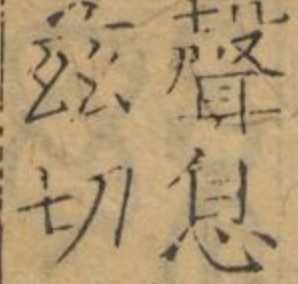 聲息
茲切